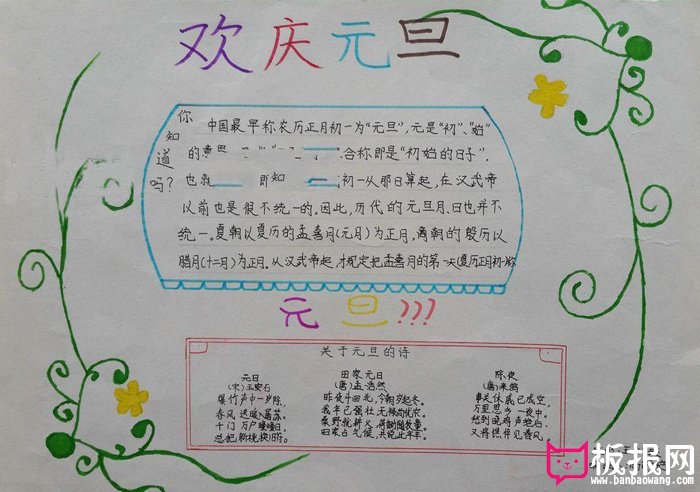 欢庆元旦
你知道吗?
中国最早称农历正月初一为“元旦”,元是“初”、“始”
的意 合称即是“初始的日子”.
也就 即 初一从那日算起,在汉武帝
以前也是很不统一的。因此,历代的元旦月、日也并不
统一。夏朝以夏历的孟喜月(元月)为正月,商朝的殷历以
腊月(十二月)为正月。从汉武帝起,才规定把孟喜月的第一天(夏历正月初一)称
元旦???
关于元旦的诗
元日
(宋)王安石
爆竹声中一岁除,
春风送暖入屠苏。
千门万户曈曈日,
总把新桃换旧符。
田家元日
(唐)孟浩然
昨夜斗回北,今朝岁起东。
我年已强壮,无禄尚忧农。
桑野就耕父,荷锄随牧童。
田家占气候,共说此年丰。
除夜
(唐)来鹄
事关休戚已成空,
万里思乡一夜中。
愁到晓鸡声绝后,
又将憔悴见春风。
板报网
www.banbaowang.com